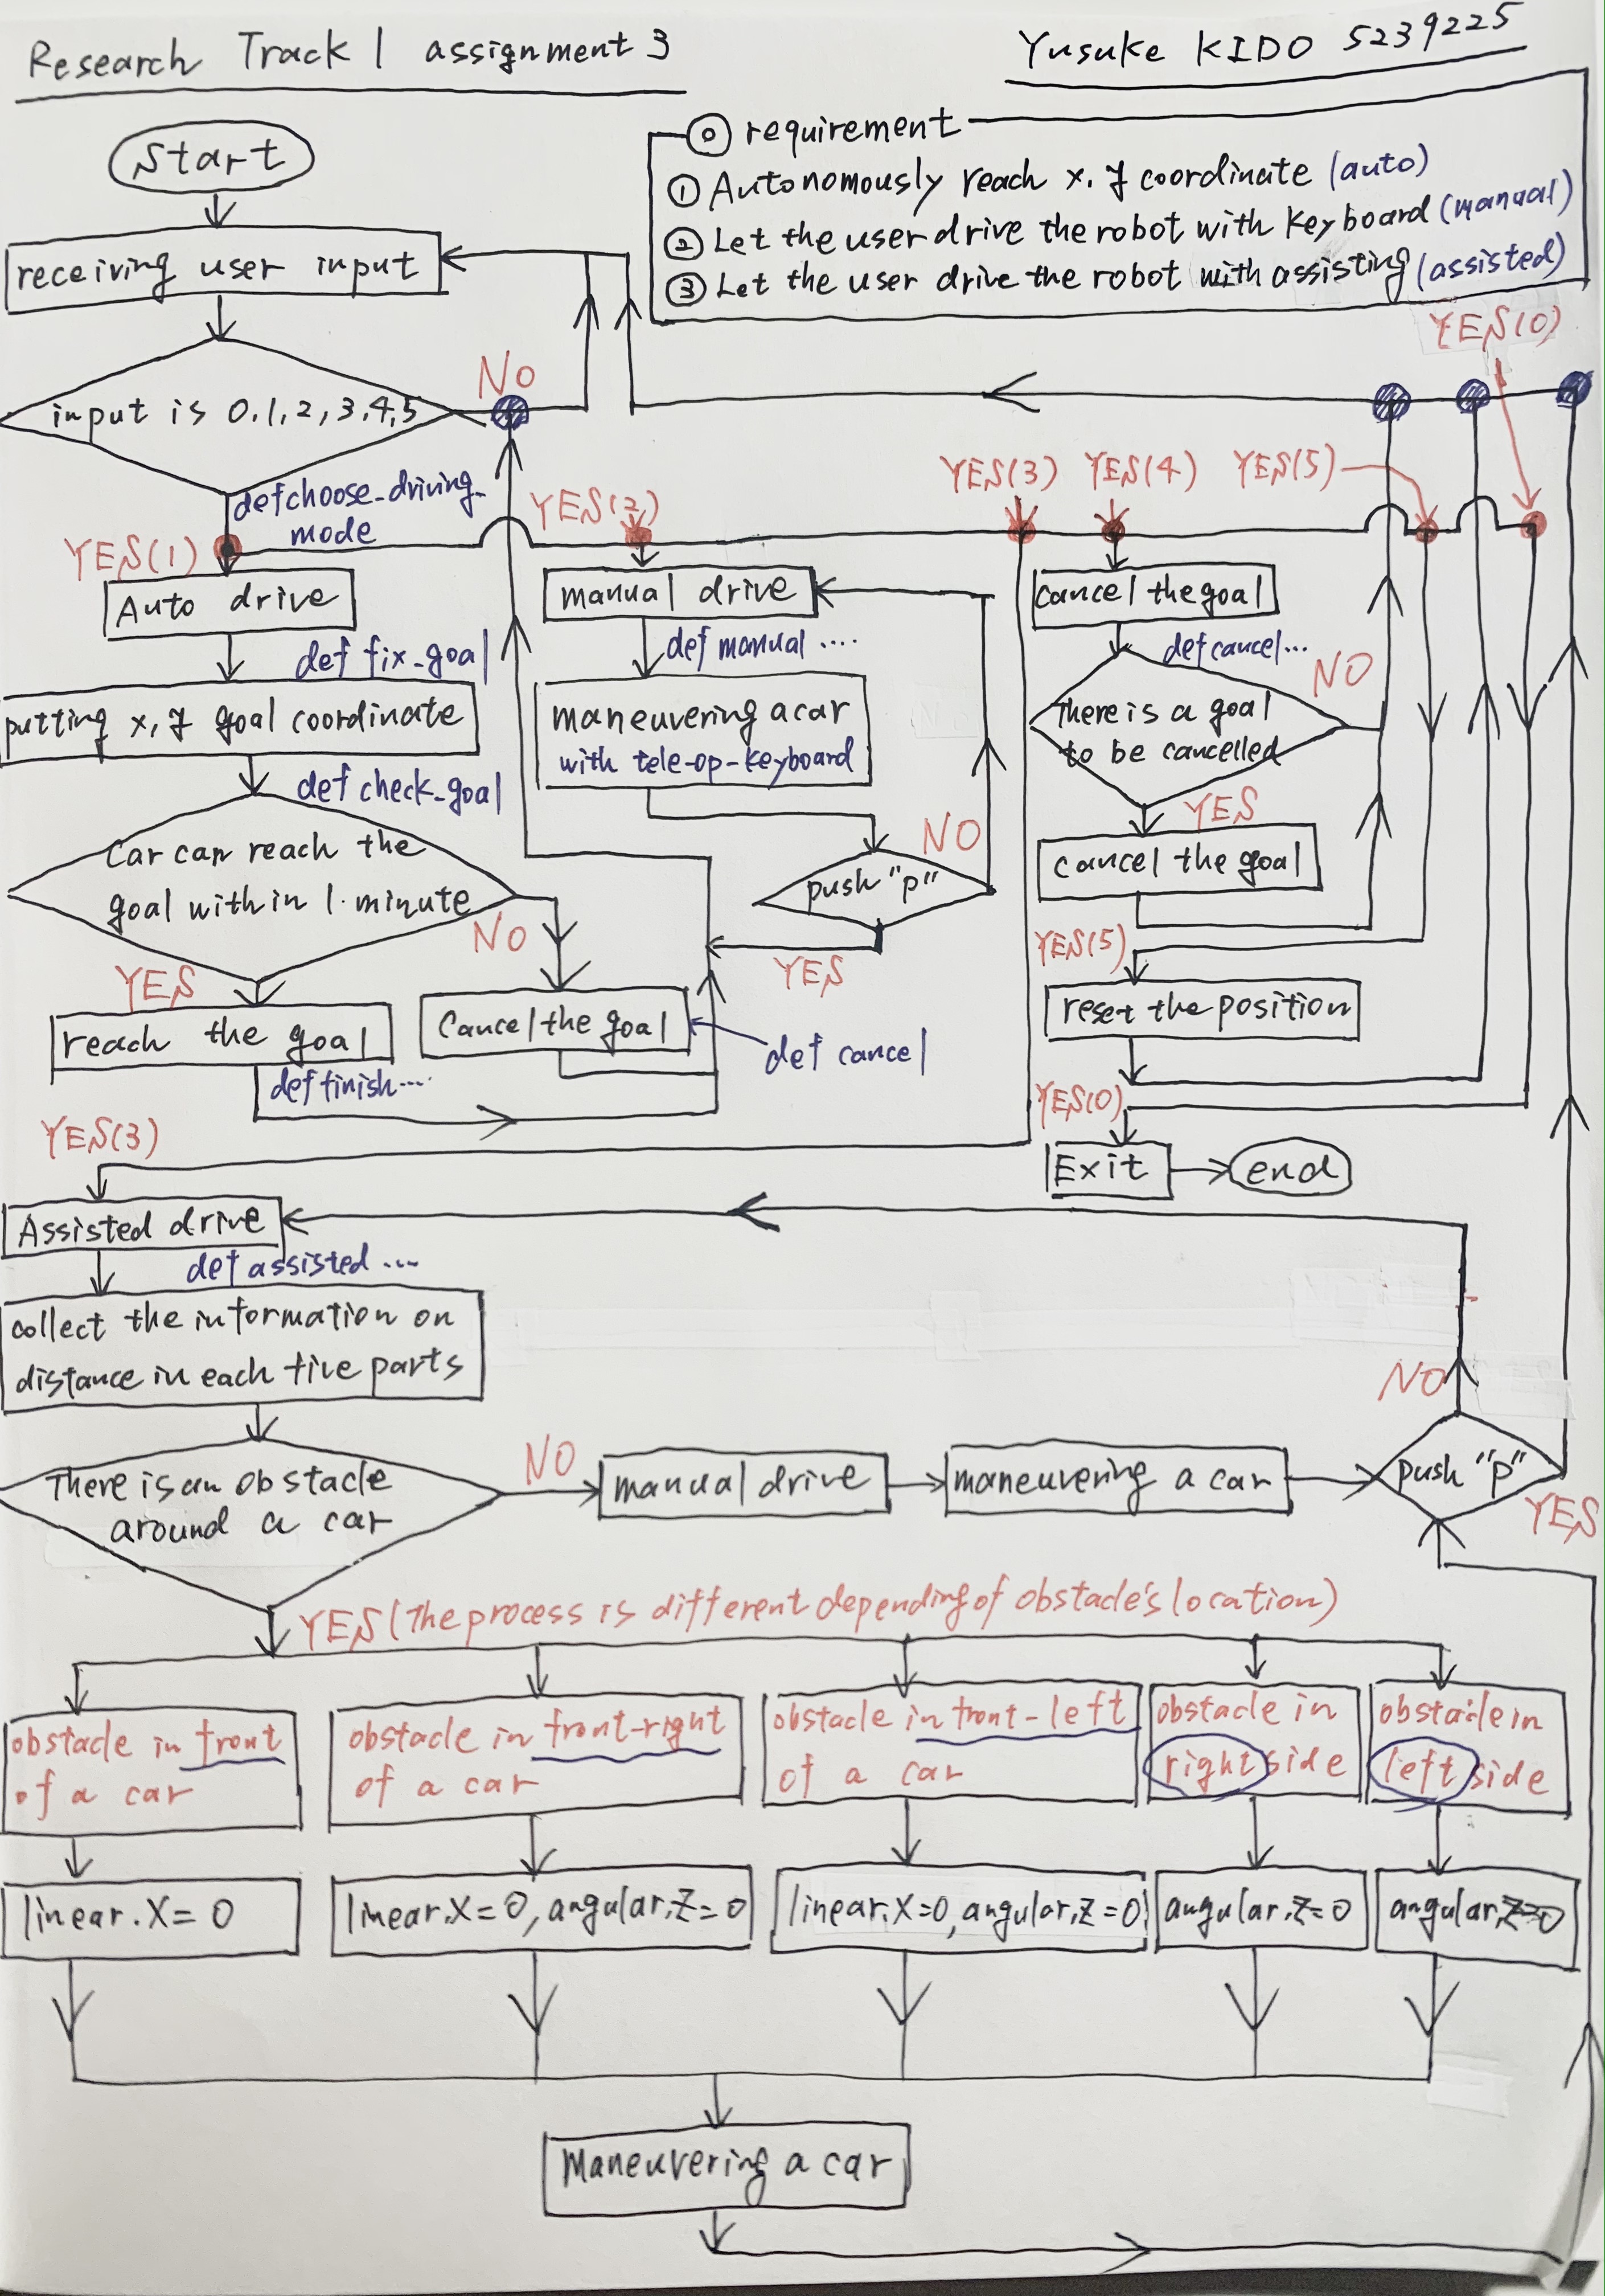 Research Track 1 assignment 3
Yusuke KIDO 5239225
◎ requirement
① Autonomously reach x, y coordinate (auto)
② Let the user drive the robot with keyboard (manual)
③ Let the user drive the robot with assisting (assisted)
Start
receiving user input
input is 0,1,2,3,4,5
NO
YES(0)
def choose_driving_
mode
YES(1)
YES(2)
YES(3)
YES(4)
YES(5)
Auto drive
def fix_goal
putting x, y goal coordinate
def check_goal
Car can reach the
goal within 1 minute
NO
YES
reach the goal
def finish....
Cancel the goal
def cancel
manual drive
def manual ....
maneuvering a car
with tele-op-keyboard
NO
push "p"
YES
cancel the goal
def cancel...
NO
There is a goal
to be cancelled
YES
cancel the goal
YES(5)
reset the position
YES(0)
Exit
end
YES(3)
Assisted drive
def assisted ....
collect the information on
distance in each five parts
There is an obstacle
around a car
NO
manual drive
maneuvering a car
NO
push "p"
YES
YES (The process is different depending of obstacle's location)
obstacle in front
of a car
obstacle in front-right
of a car
obstacle in front-left
of a car
obstacle in
right side
obstacle in
left side
linear.X=0
linear.X=0, angular.Z=0
linear.X=0, angular.Z=0
angular.Z=0
angular.Z=0
Maneuvering a car